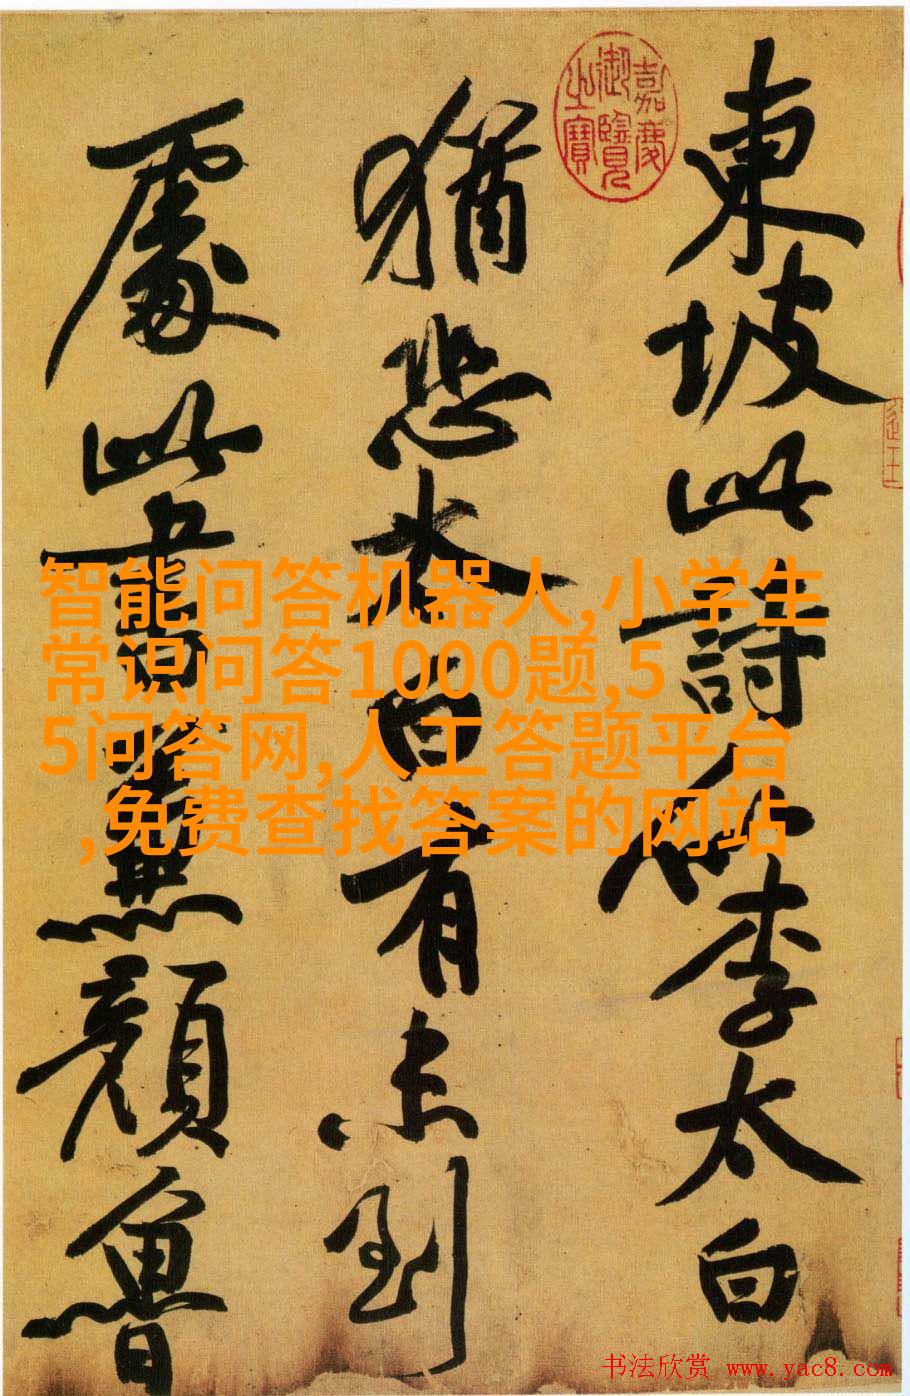 東坡此詩似李太白
猶恐太白有未到
處此書兼顏魯
嘉慶
御覽
之寶
智能问答机器人,小学生
常识问答1000题,5
5问答网,人工答题平台
,免费查找答案的网站
书法欣赏 www.yac8.com